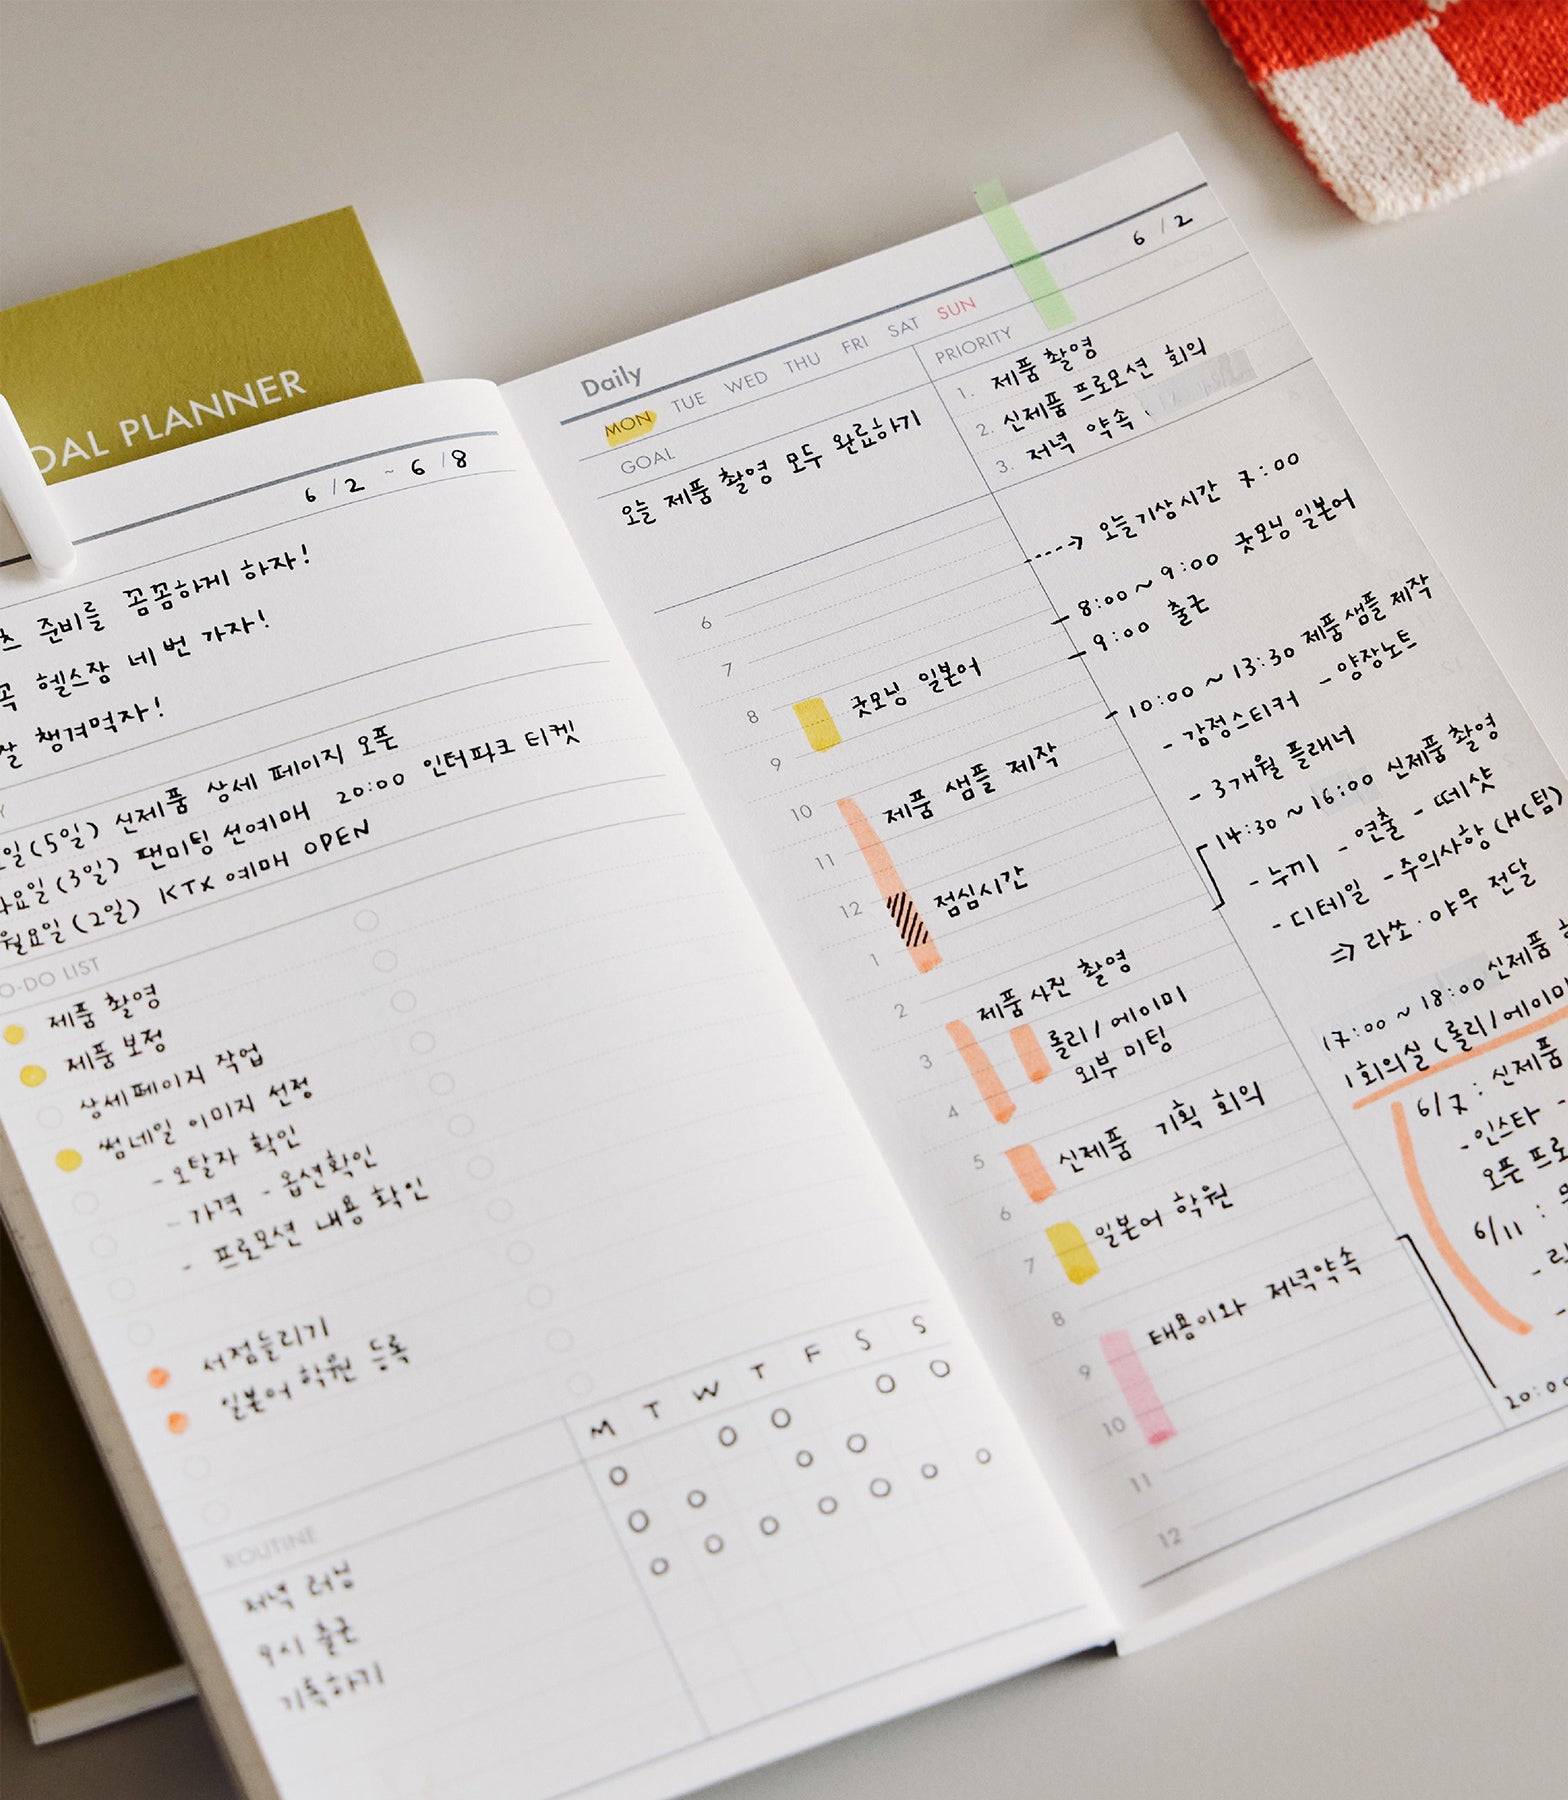 OAL PLANNER
6/2 ~ 6/8
준비를 꼼꼼하게 하자!
꼭 헬스장 네 번 가자!
잘 챙겨먹자!
일(5일) 신제품 상세 페이지 오픈
화요일(3일) 팬미팅 선예매 20:00 인터파크 티켓
월요일(2일) KTX 예매 OPEN
O-DO LIST
제품 촬영
제품 보정
상세페이지 작업
썸네일 이미지 선정
- 오탈자 확인
- 가격 - 옵션확인
- 프로모션 내용 확인
서점들리기
일본어 학원 등록
M T W T F S S
ROUTINE
저녁 러닝
9시 출근
기록하기
Daily
6/2
MON TUE WED THU FRI SAT SUN
GOAL
오늘 제품 촬영 모두 완료하기
PRIORITY
1. 제품 촬영
2. 신제품 프로모션 회의
3. 저녁 약속
6
7
8 굿모닝 일본어
9
10 제품 샘플 제작
11
12 점심시간
1
2 제품 사진 촬영
3 롤리/에이미
외부 미팅
4
5 신제품 기획 회의
6
7 일본어 학원
8
9 태용이와 저녁약속
10
11
12
오늘기상시간 7:00
8:00 ~ 9:00 굿모닝 일본어
9:00 출근
10:00 ~ 13:30 제품 샘플 제작
- 감정스티커 - 양장노트
- 3개월 플래너
14:30 ~ 16:00 신제품 촬영
- 누끼 - 연출 - 떼샷
- 디테일 - 주의사항 (HC팀)
=> 라쏘·야무 전달
17:00 ~ 18:00 신제품
1회의실 (롤리/에이미
6/7 : 신제품
- 인스타 -
오픈 프로
6/11 :
20:00